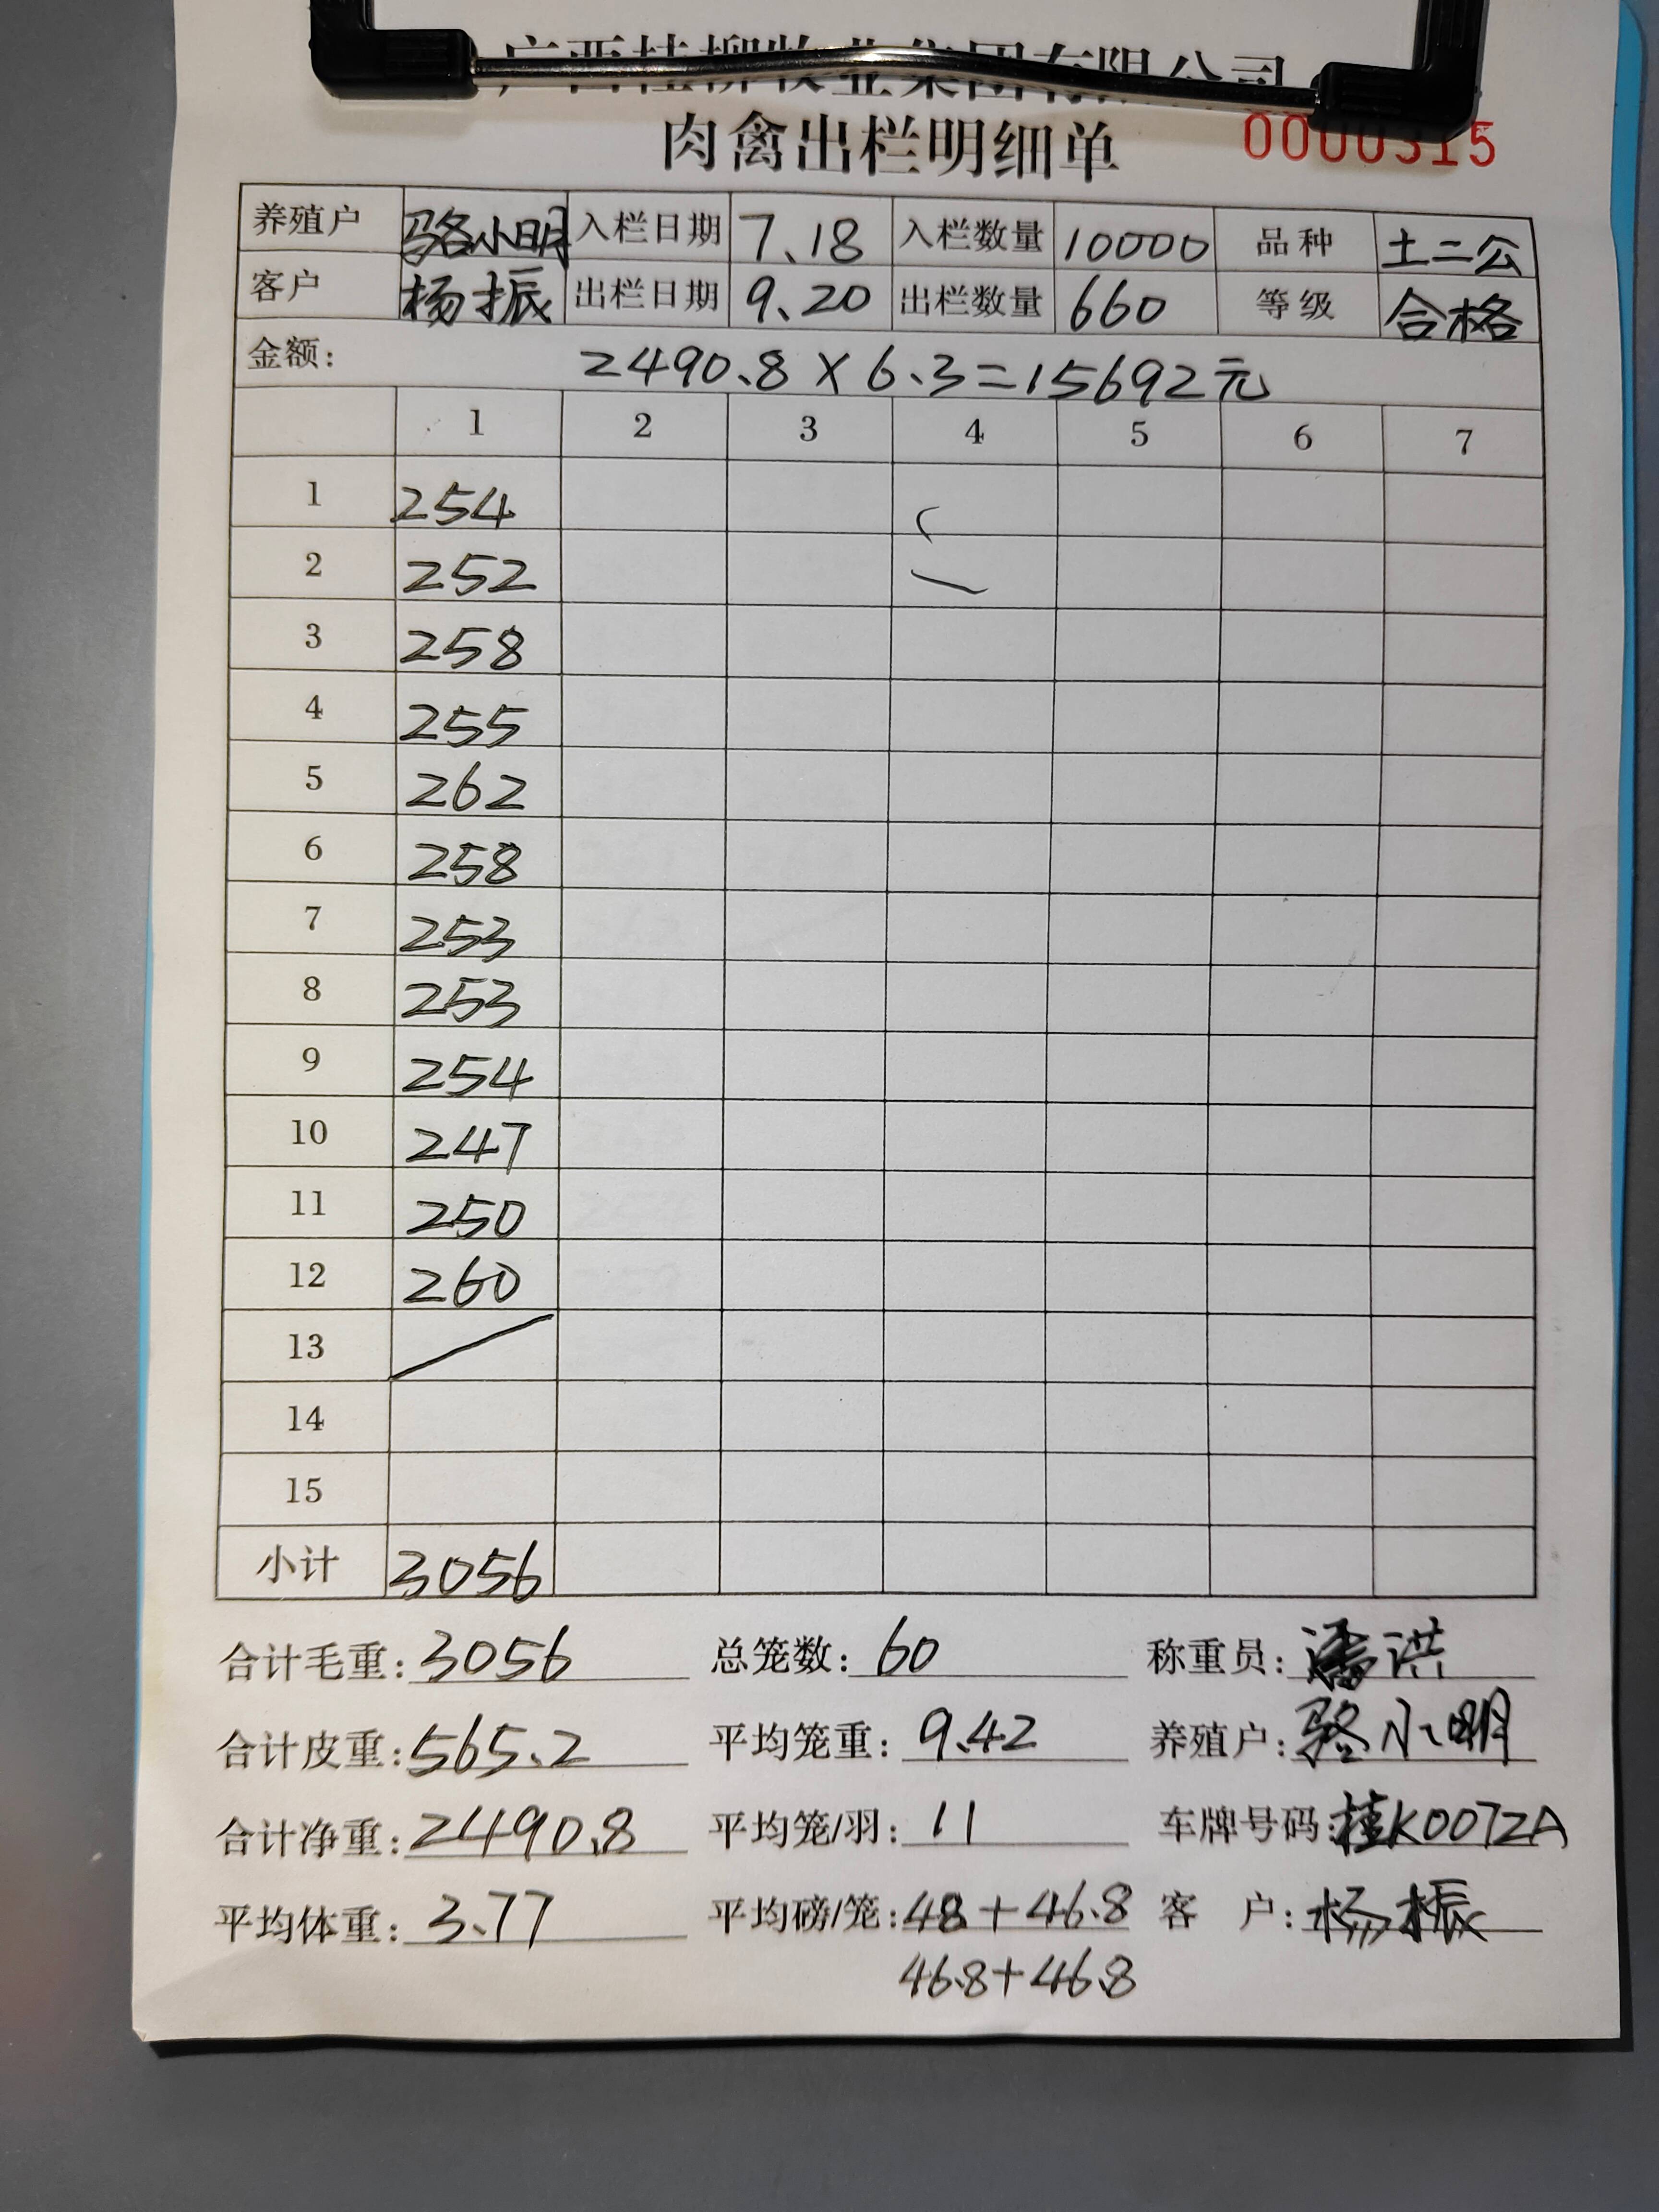 肉禽出栏明细单 0000315
养殖户 骆小明 入栏日期 7.18 入栏数量 10000 品种 土二公
客户 杨振 出栏日期 9.20 出栏数量 660 等级 合格
金额: 2490.8×6.3=15692元
1 2 3 4 5 6 7
1 254
2 252
3 258
4 255
5 262
6 258
7 253
8 253
9 254
10 247
11 250
12 260
13
14
15
小计 3056
合计毛重: 3056 总笼数: 60 称重员: 潘洪
合计皮重: 565.2 平均笼重: 9.42 养殖户: 骆小明
合计净重: 2490.8 平均笼/羽: 11 车牌号码: 桂K007ZA
平均体重: 3.77 平均磅/笼: 48+46.8 客户: 杨振
46.8+46.8